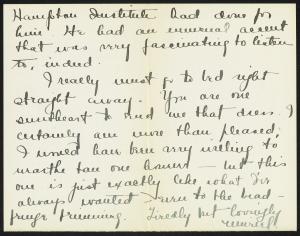 Hampton Institute had done for
him. He had an unusual accent
that was very fascinating to listen
to, indeed.
I really must go to bed right
straight away. You are one
sweetheart to send me that dress. I
certainly am more than pleased.
I would have been very willing to
the tan one over — but this
one is just exactly like what I've
always wanted turn to the
Tiredly but lovingly